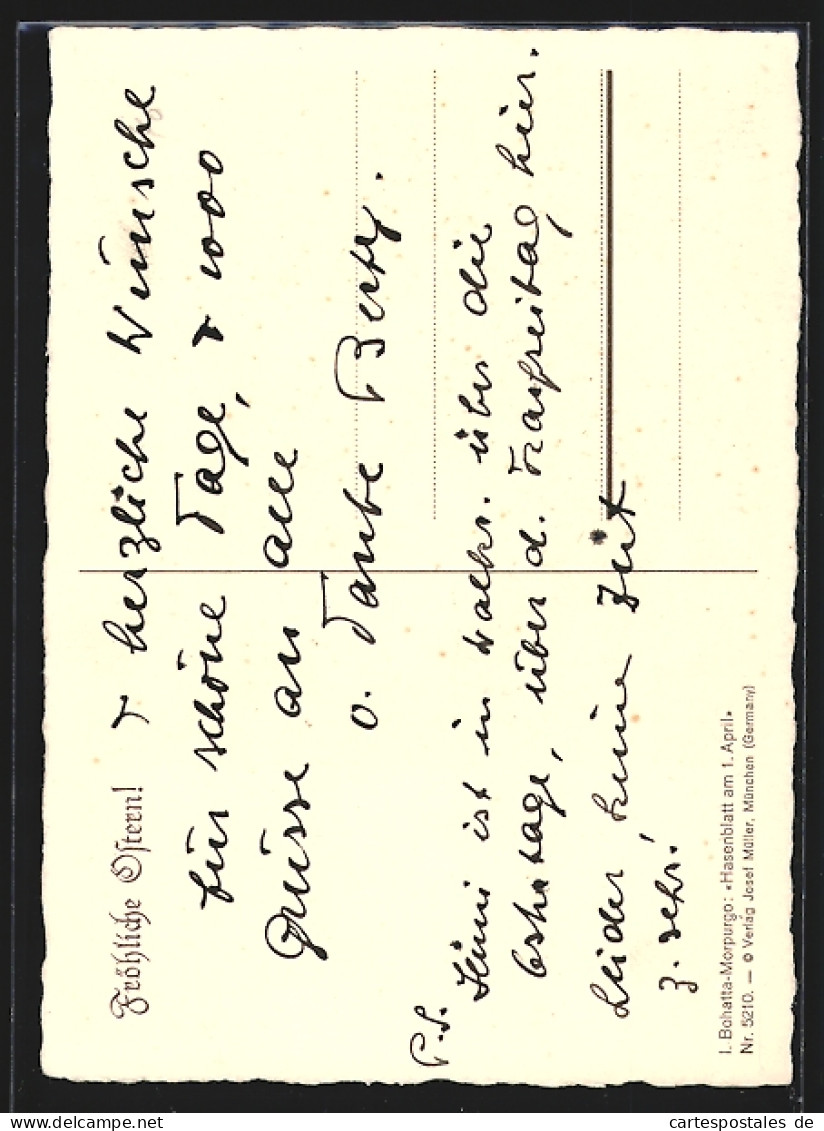 Fröhliche Ostern! + herzliche Wünsche
für schöne Tage, + 1000
Grüsse an alle
o. Tante Berty.
P.S.
ist in über die
tage, über d. Karfreitag hier.
Leider keine Zeit
z. sehr!
I. Bohatta-Morpurgo: «Hasenblatt am 1. April»
Nr. 5210. — © Verlag Josef Müller, München (Germany)
www.delcampe.net
cartespostales de